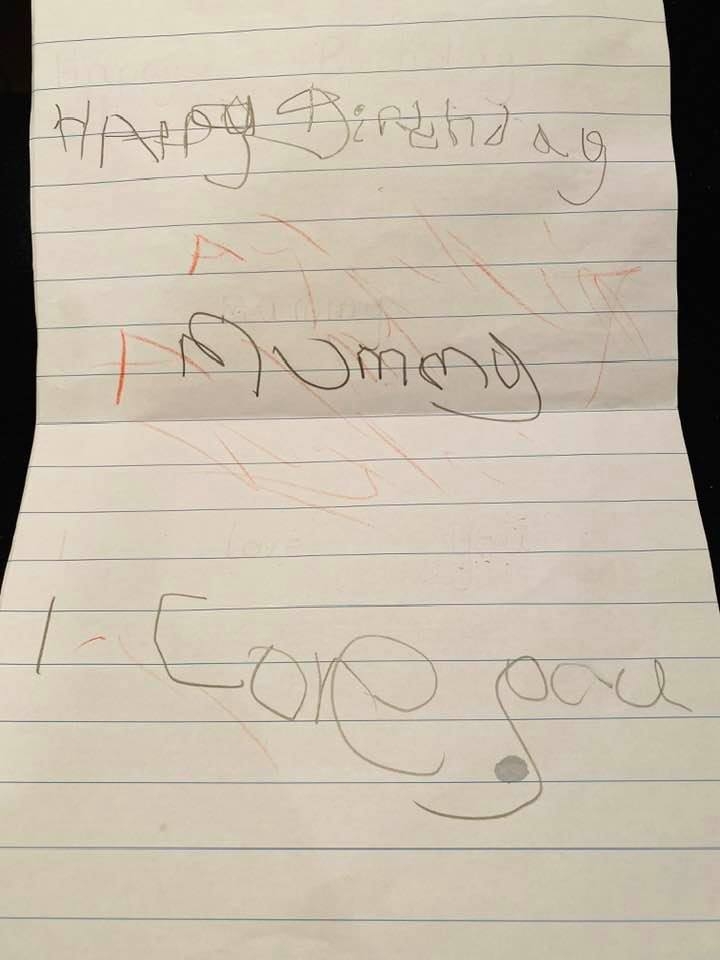 HAPPy Birthday
Mummy
I Love you